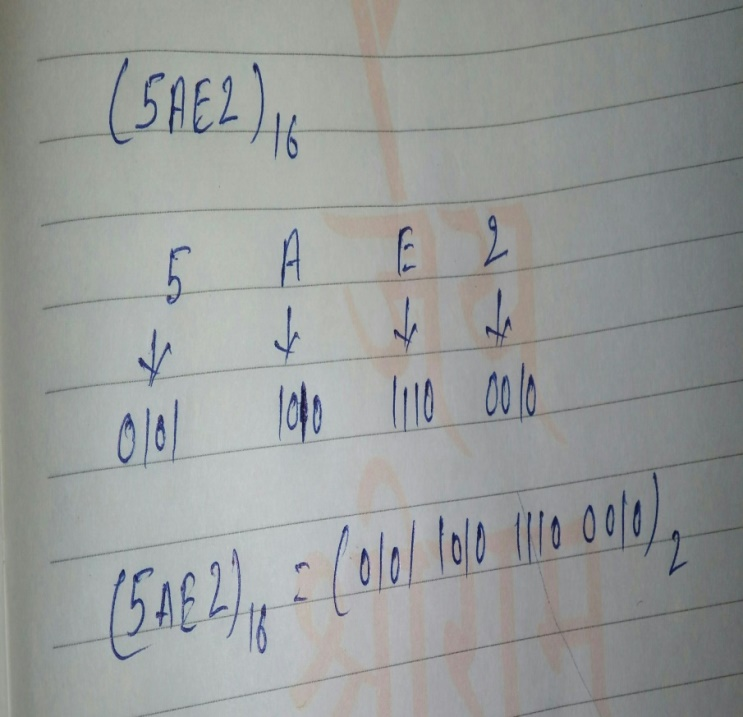 (5AE2)₁₆
5 A E 2
↓ ↓ ↓ ↓
0101 1010 1110 0010
(5AE2)₁₆ = (0101 1010 1110 0010)₂